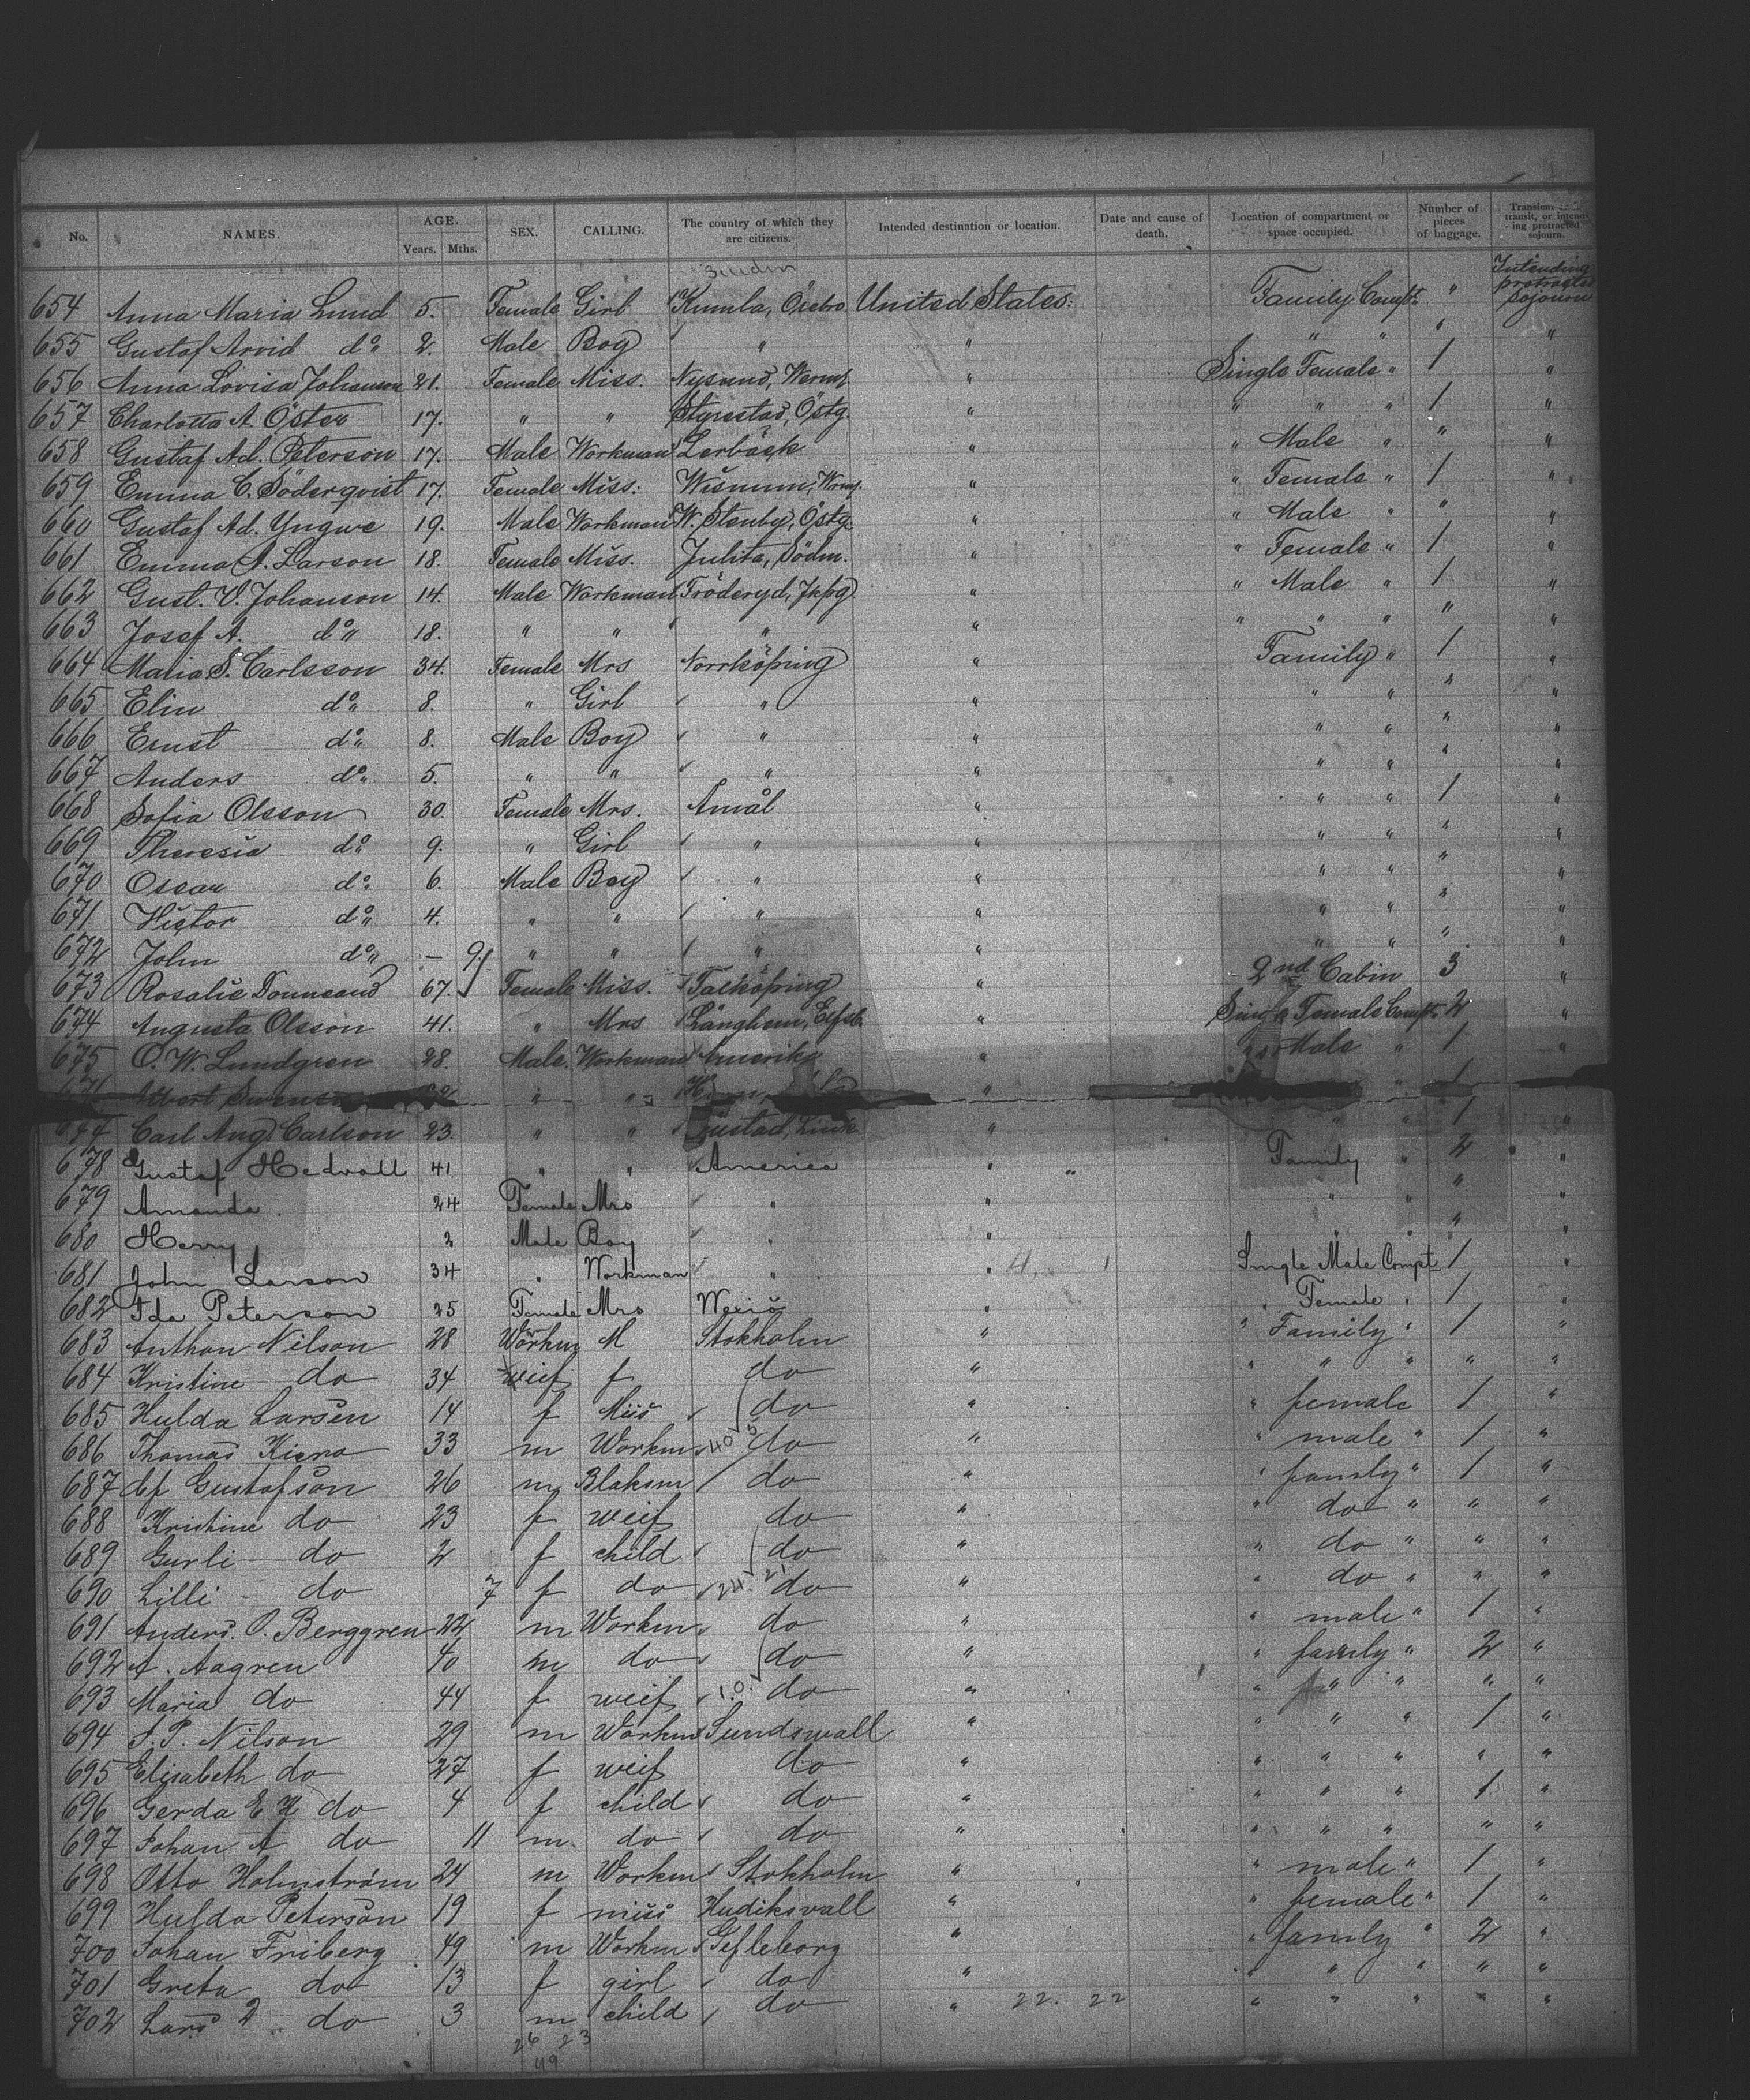 No. NAMES. AGE. Years. Mths. SEX. CALLING. The country of which they are citizens. Intended destination or location. Date and cause of death. Location of compartment or space occupied. Number of pieces of baggage. Transient transit, or intending protracted sojourn.
654 Anna Maria Lund 5. Female Girl Kumla, Örebro United States: Family Compt. " Intending protracted sojourn
655 Gustaf Arvid do 2. Male Boy " " " " " "
656 Anna Lovisa Johanson 21. Female Miss. Nysund, Werml. " Single Female " 1 "
657 Charlotta A. Öster 17. " " Styrestad, Östg. " " " " 1 "
658 Gustaf Ad. Peterson 17. Male Workman Lerbäck " " Male " " "
659 Emma C. Söderqvist 17. Female Miss: Wisnum, Werml. " " Female " 1 "
660 Gustaf Ad. Yngwe 19. Male Workman W. Stenby, Östg. " " Male " " "
661 Emma A. Larson 18. Female Miss. Julita, Södm. " " Female " 1 "
662 Gust. V. Johanson 14. Male Workman Fröderyd, Jkpg " " Male " 1 "
663 Josef A. do 18. " " " " " " " " "
664 Maria S. Carlsson 34. Female Mrs Norrköping " Family " 1 "
665 Elin do 8. " Girl " " " " " "
666 Ernst do 8. Male Boy " " " " " "
667 Anders do 5. " " " " " " " "
668 Sofia Olsson 30. Female Mrs. Åmål " " " 1 "
669 Theresia do 9. " Girl " " " " " "
670 Oscar do 6. Male Boy " " " " " "
671 Victor do 4. " " " " " " " "
672 John do — 9. " " " " " " " "
673 Rosalie 67. Female Miss. Falköping " 2nd Cabin 3 "
674 Augusta Olsson 41. " Mrs Långhem, Elfsb. " Single Female Compt. 2 "
675 O. W. Lundgren 28. Male Workman Amerika " " Male " 1 "
Albert Swenson " " " 1
677 Carl Aug. Carlson 23. " " " " " 1 "
678 Gustaf Hedvall 41 " " America " " Family " 2 "
679 Amanda 24 Female Mrs " " " " " "
680 Herry 2 Male Boy " " " " " "
681 John Larson 34 " Workman " " Single Male Compt. 1 "
682 Ida Peterson 25 Female Mrs Wexiö " " Female " 1 "
683 Anthon Nilson 28 Workm M Stokholm " " Family " 1 "
684 Kristine do 34 weif f do " " " " " "
685 Hulda Larsen 14 f Miis do " " female 1 "
686 Thomas 33 m Workm do " " male " 1 "
687 Gustafson 26 m Blaksm do " " family " 1 "
688 Kristine do 23 f weif do " " do " " "
689 Gurli do 2 f child do " " do " " "
690 Lilli do 7 f do 24. 21 do " " do " " "
691 Anders. O. Berggren 22 m Workm do " " male " 1 "
692 A. Aagren 40 m do do " " family " 2 "
693 Maria do 44 f weif 10. do " " " " " "
694 Nilson 29 m Workm Sundswall " " " " 1 "
695 Elisabeth do 27 f weif do " " " " " "
696 Gerda E H do 4 f child do " " " " 1 "
697 Johan A do 11 m do do " " " " " "
698 Otto Holmström 24 m Workm Stokholm " " male " 1 "
699 Hulda Peterson 19 f miss Hudiksvall " " female " 1 "
700 Johan Friberg 49 m Workm Gefleborg " " family " 2 "
701 Greta do 13 f girl do " " " " " "
702 Lars do 3 m child do " 22. 22 " " " " "
26 23
49